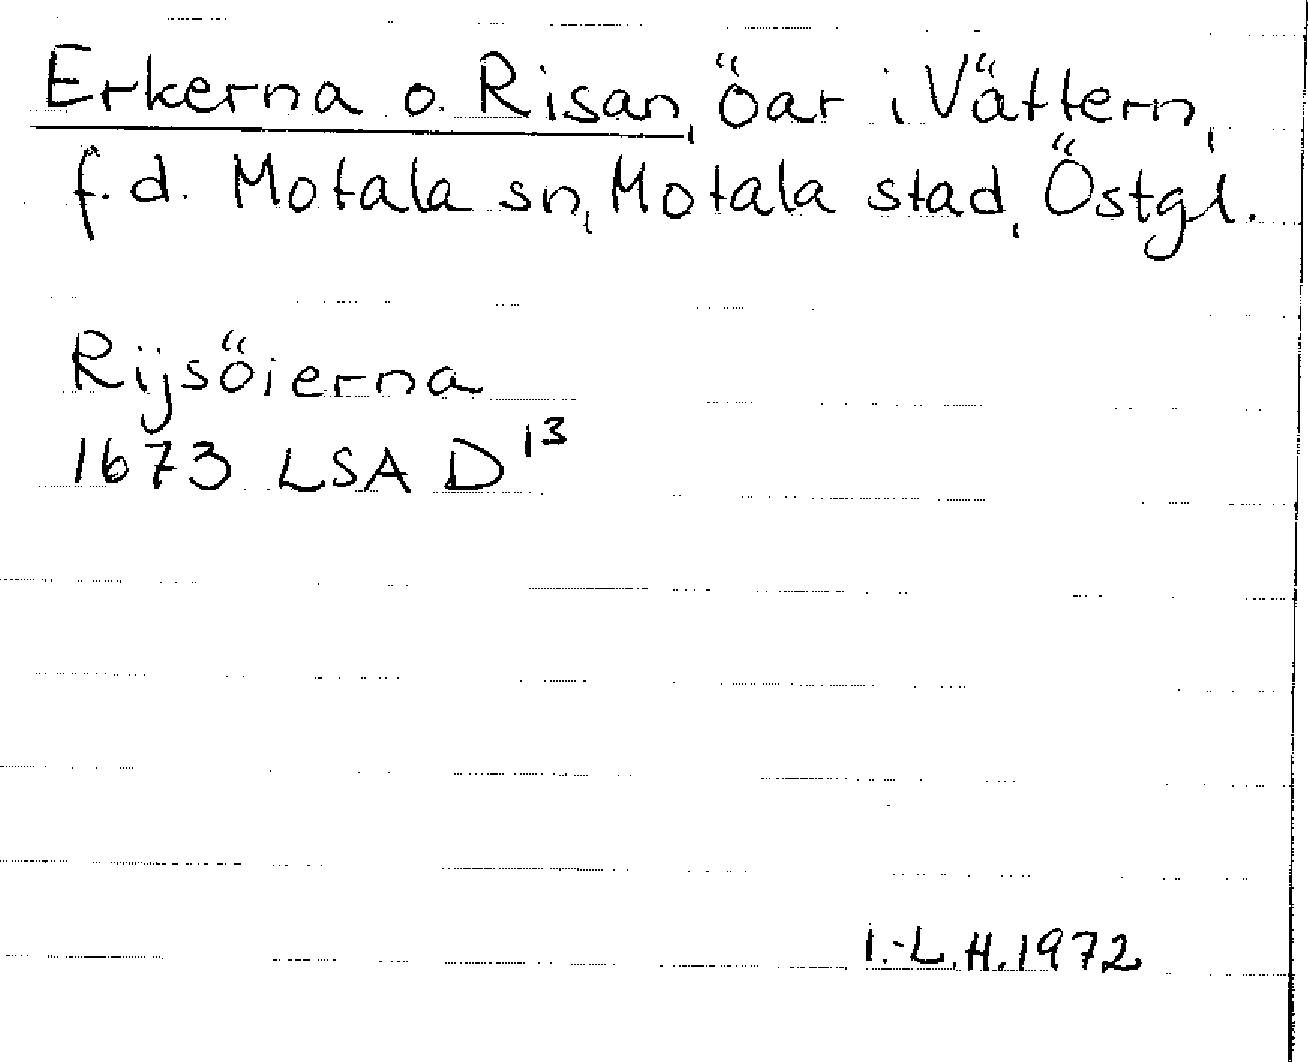 Erkerna o. Risan, öar i Vättern,
f.d. Motala sn, Motala stad, Östgl.
Rijsöierna
1673 LSA D¹³
I.-L.H. 1972